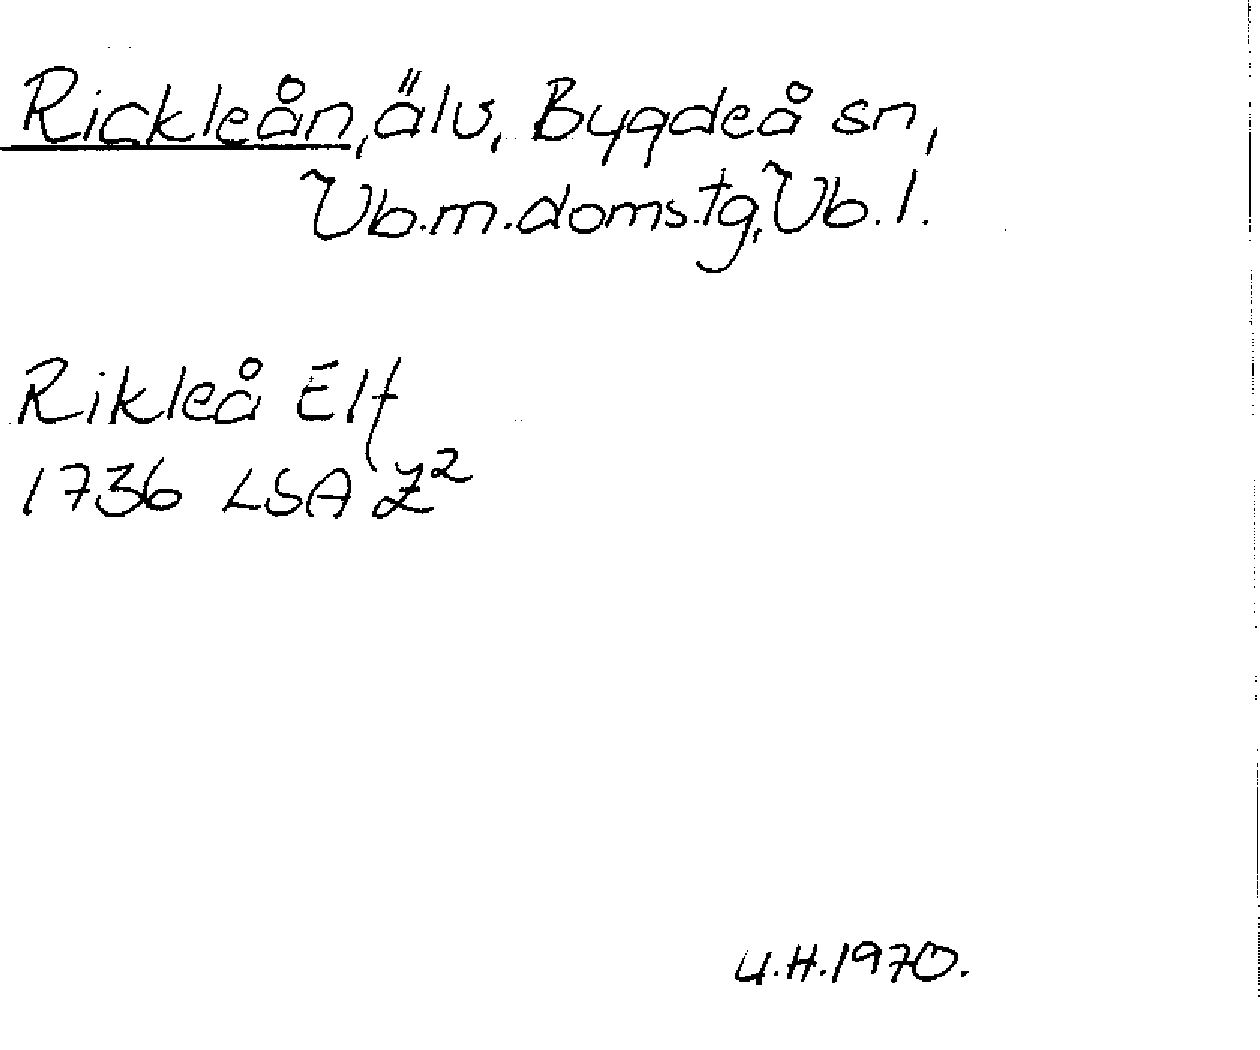 Rickleån, älv, Bygdeå sn,
Vb.m.doms.tg, Vb.l.
Rikleå Elf
1736 LSA Z²
U.H.1970.